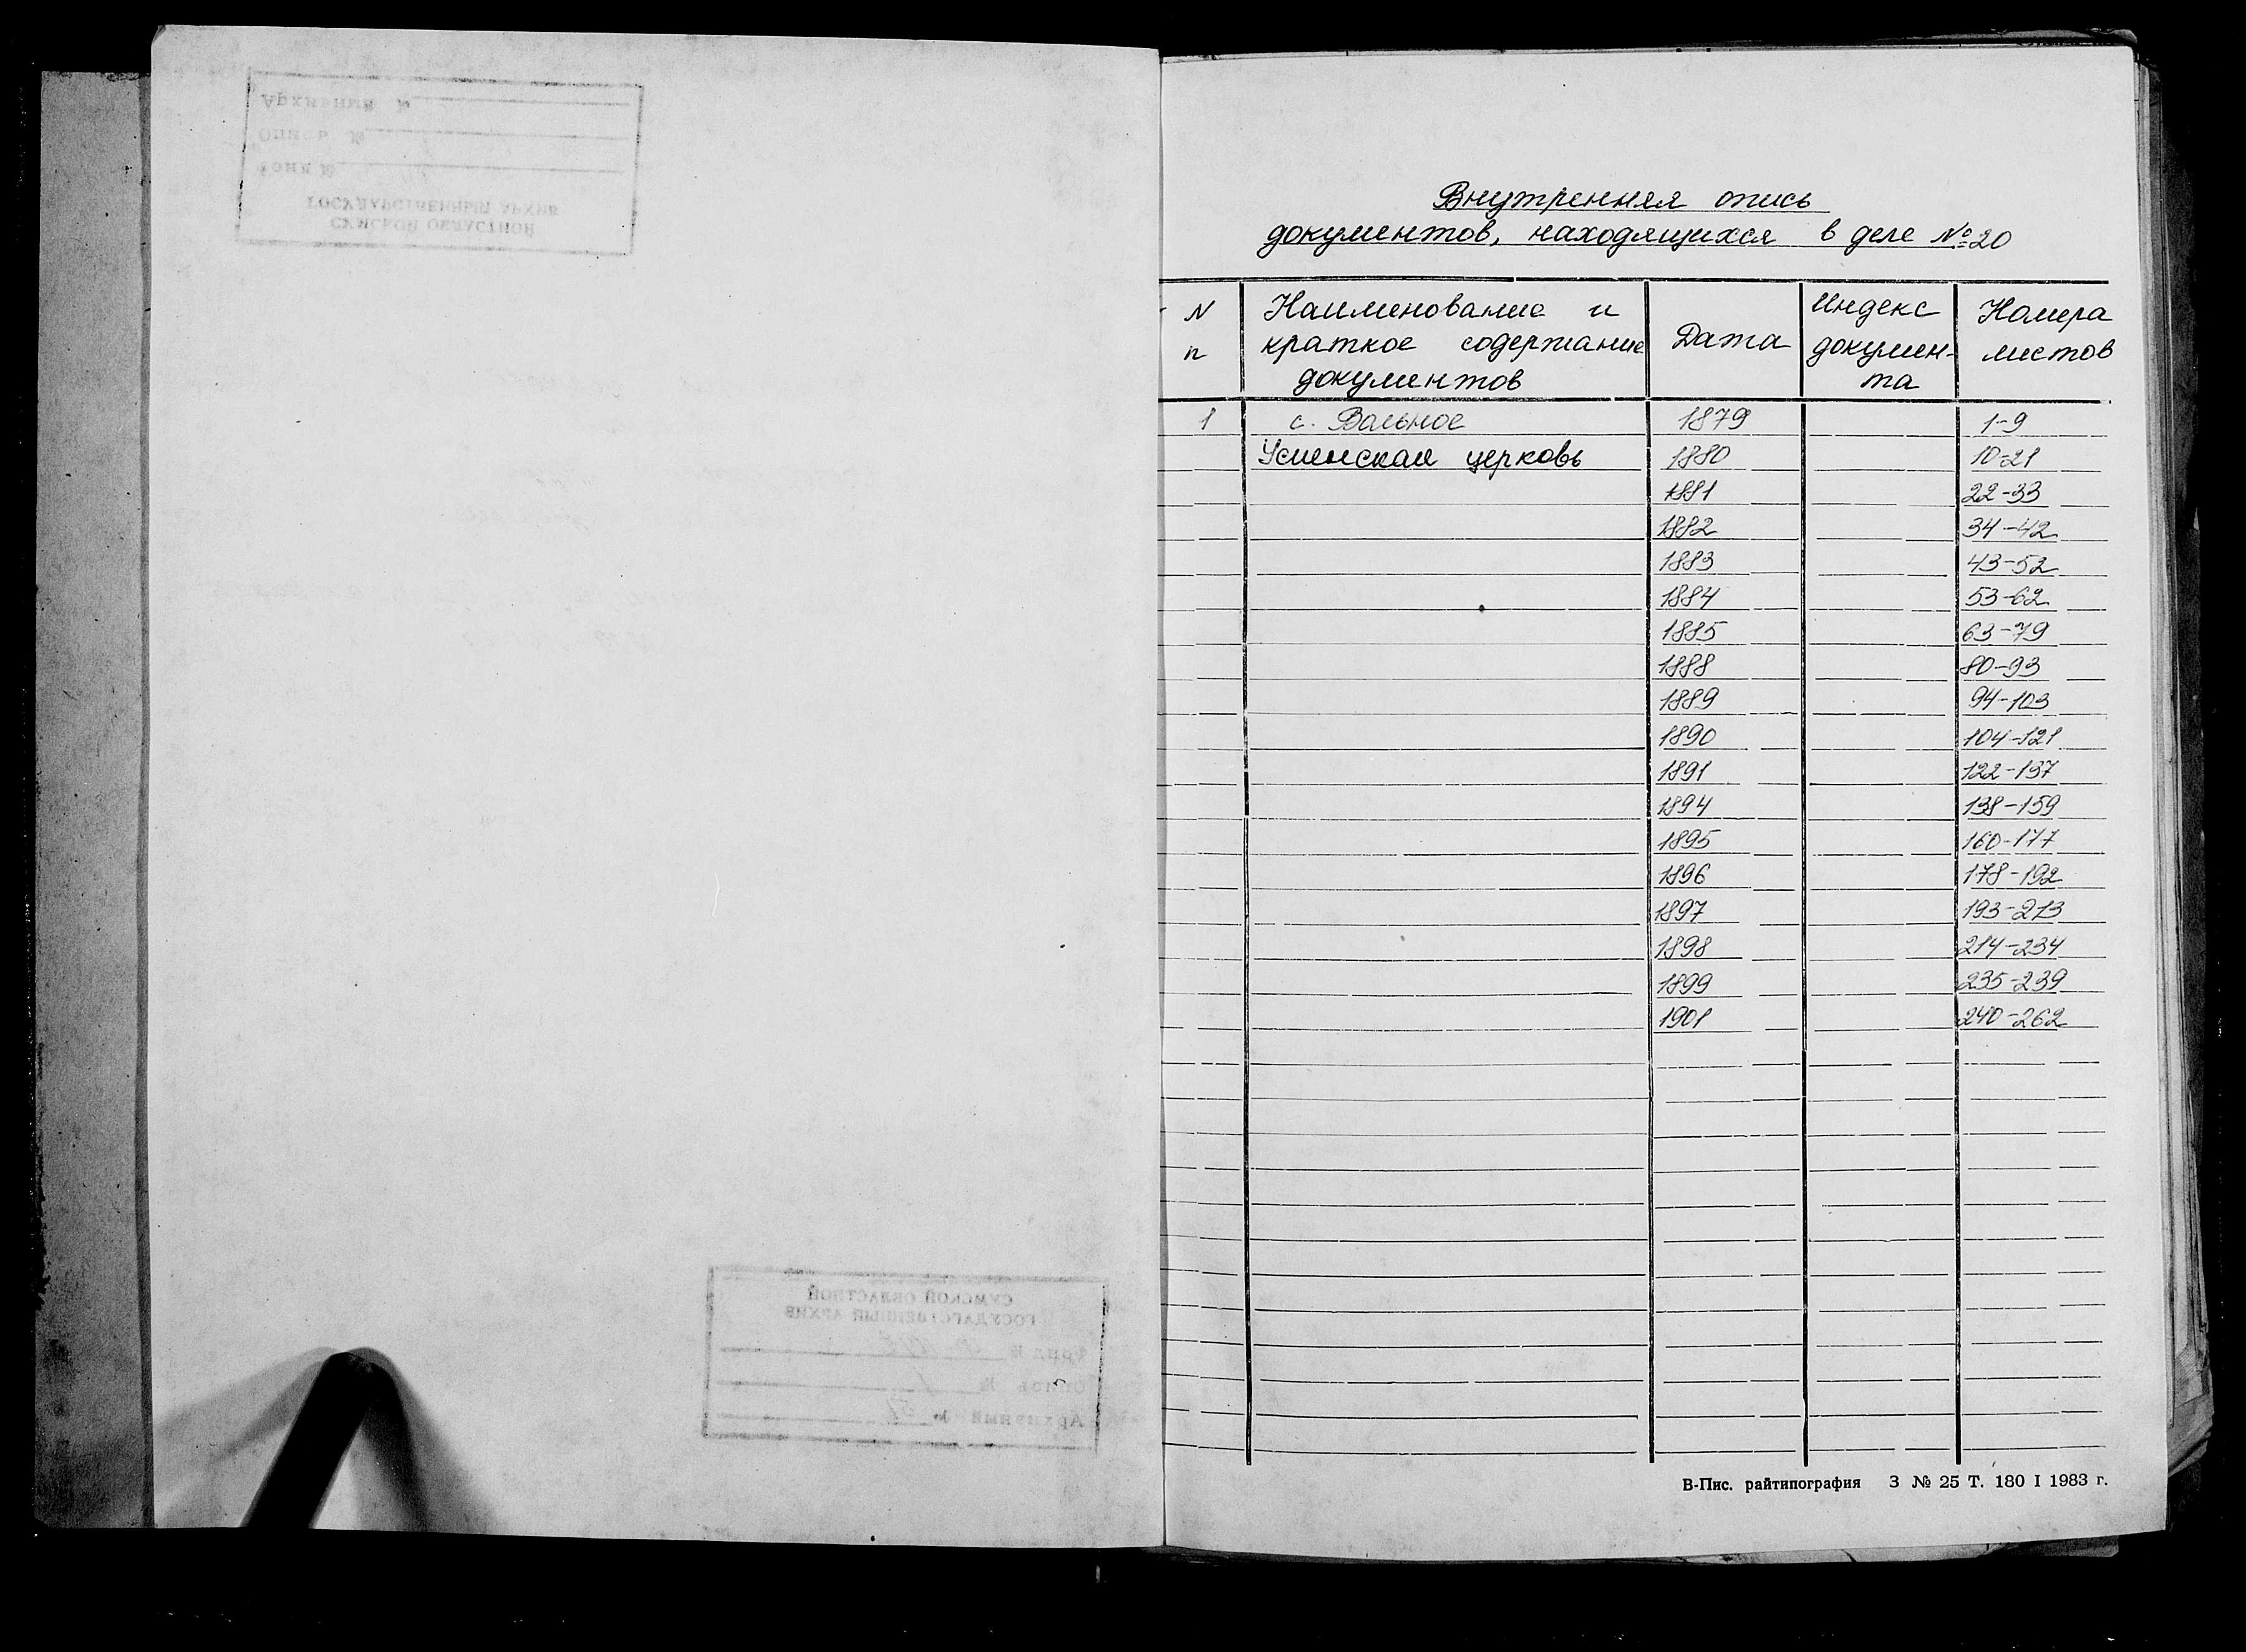 Архивный №
Опись №
Фонд №
ГОСУДАРСТВЕННЫЙ АРХИВ
СУМСКОЙ ОБЛАСТНОЙ
СУМСКОЙ ОБЛАСТНОЙ
ГОСУДАРСТВЕННЫЙ АРХИВ
Фонд №
Опись № 1
Архивный №
Внутренняя опись
документов, находящихся в деле № 20
N п Наименование и краткое содержание документов Дата Индекс докумен-та Номера листов
1 с. Вольное 1879 1-9
Успенская церковь 1880 10-21
1881 22-33
1882 34-42
1883 43-52
1884 53-62
1885 63-79
1888 80-93
1889 94-103
1890 104-121
1891 122-137
1894 138-159
1895 160-177
1896 178-192
1897 193-213
1898 214-234
1899 235-239
1901 240-262
В-Пис. райтипография З № 25 Т. 180 I 1983 г.